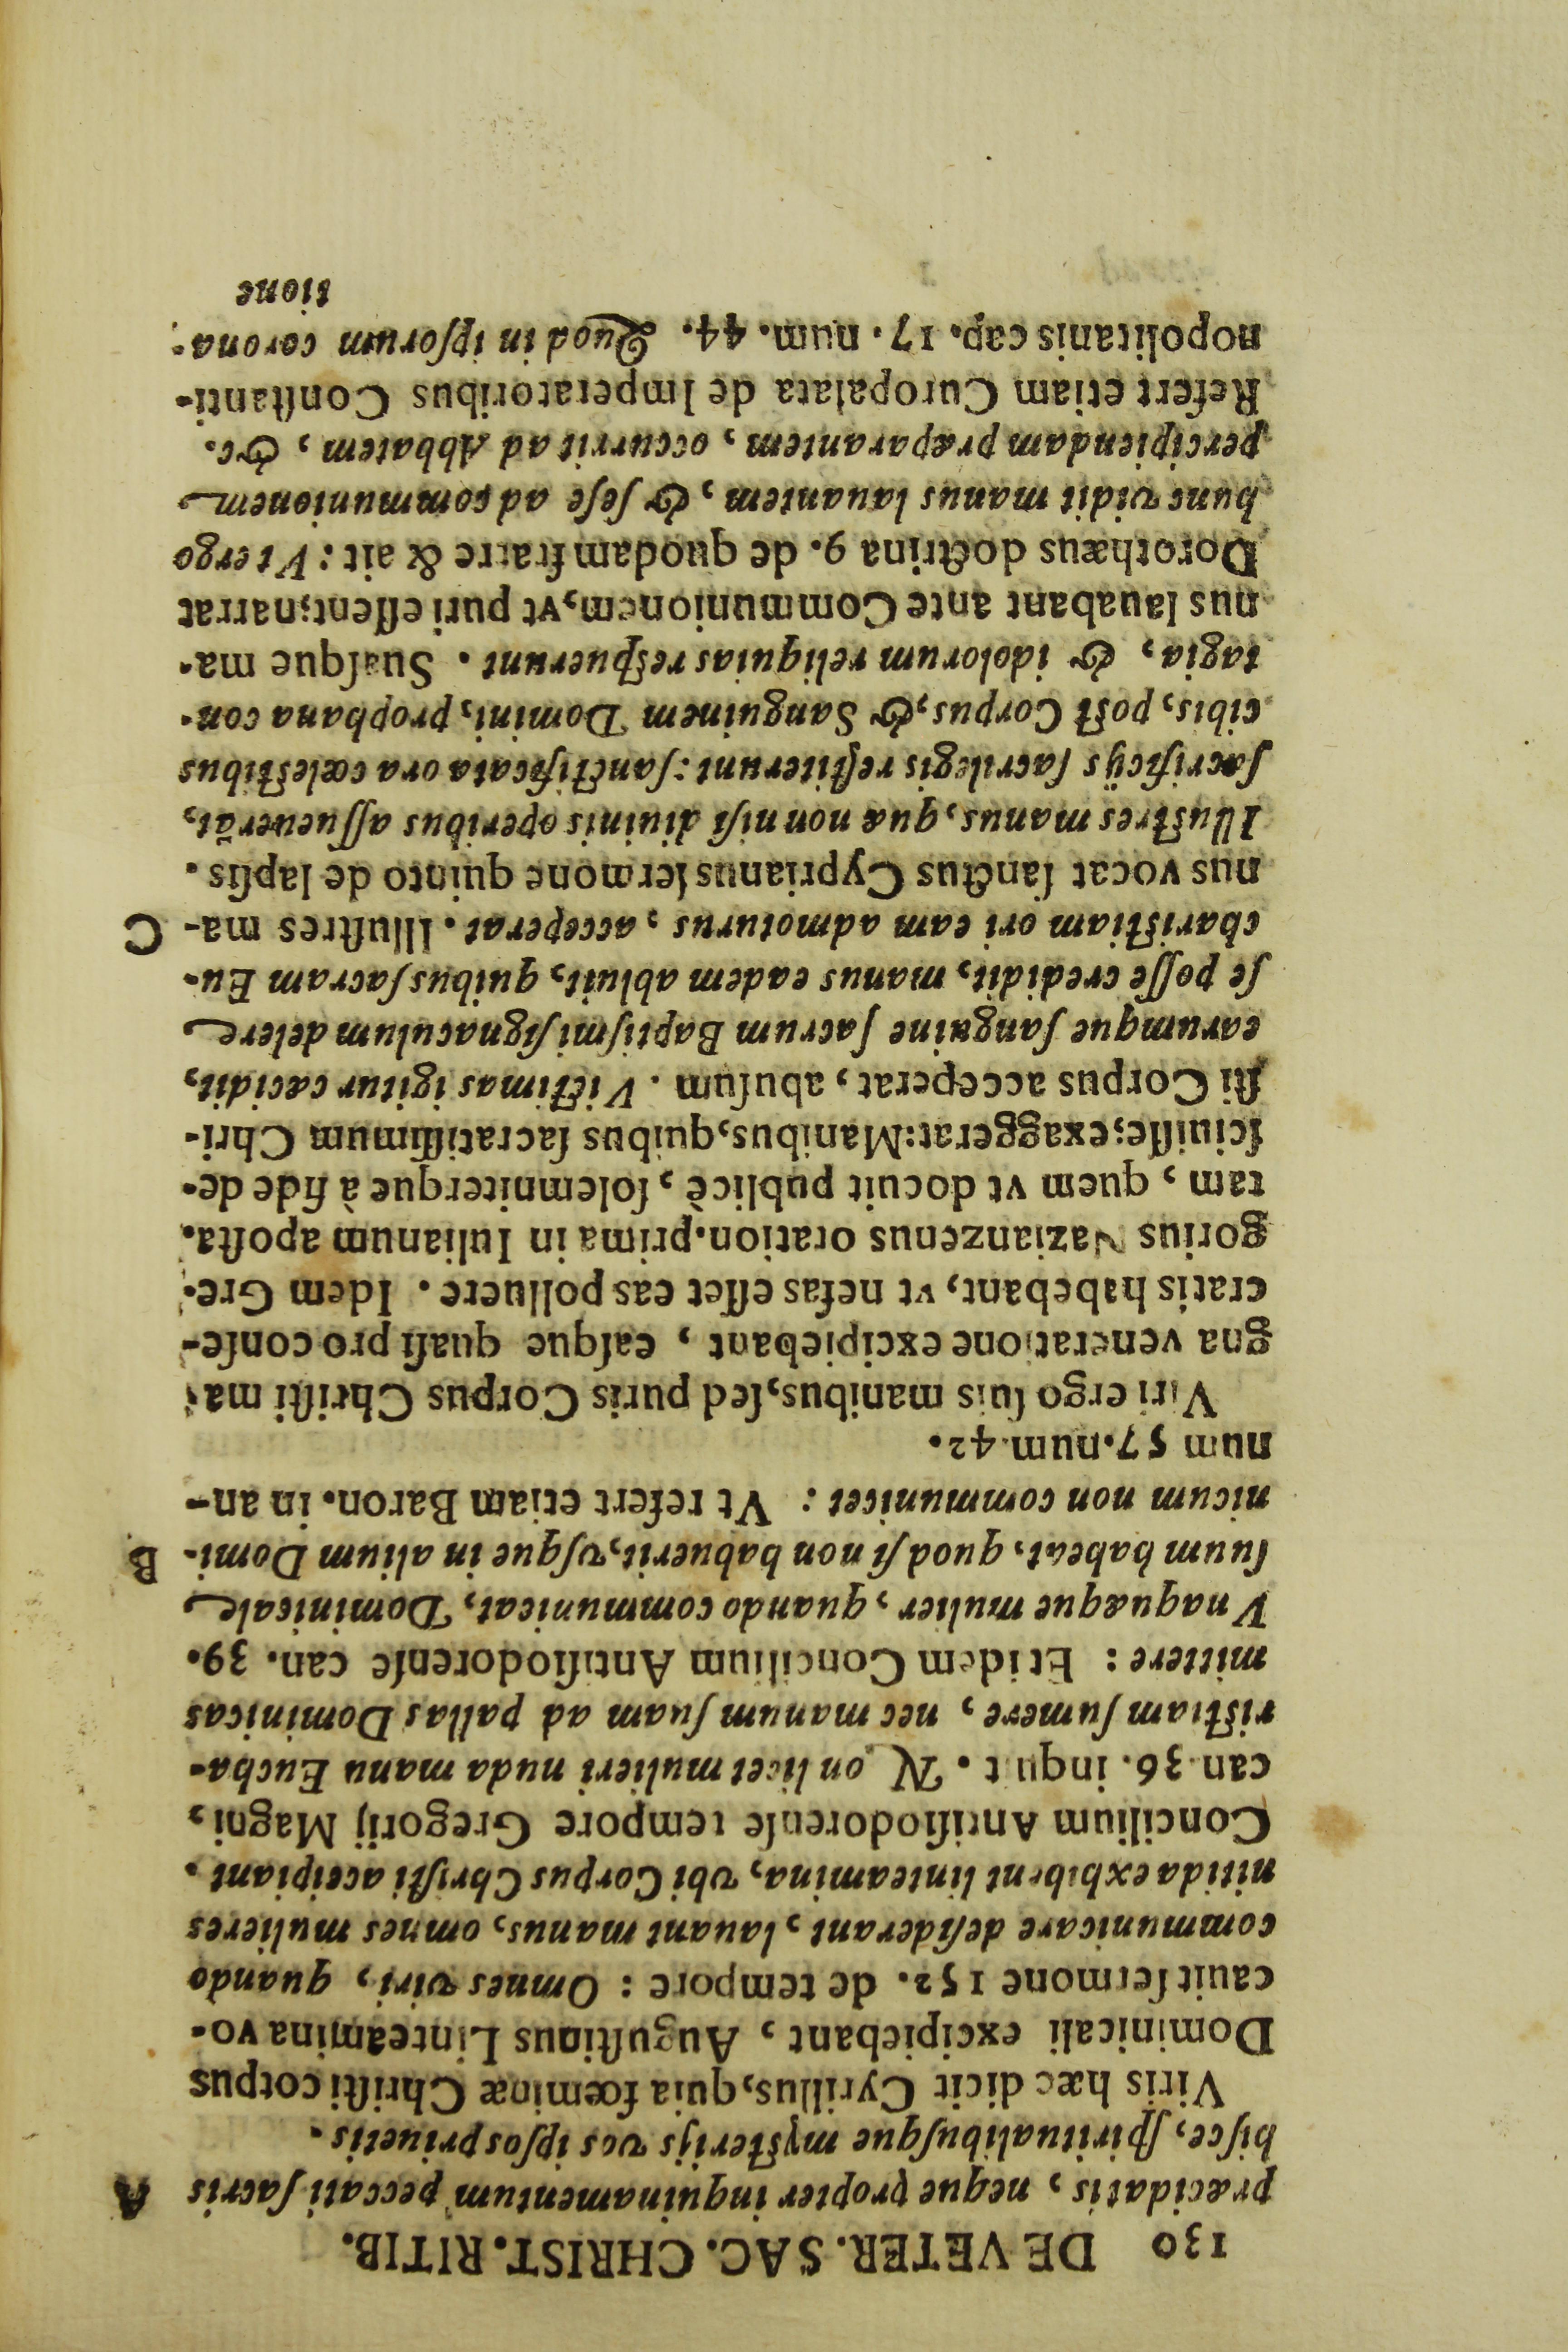 130 DE VETER. SAC. CHRIST. RITIB.
præcidatis, neque propter inquinamentum peccati ſacris A
hiſce, ſpiritualibuſque myſterijs vos ipſos priuetis.
Viris hæc dicit Cyrillus, quia fœminæ Chriſti corpus
Dominicali excipiebant, Auguſtinus Linteamina vo-
cauit ſermone 152. de tempore: Omnes viri, quando
communicare deſiderant, lauant manus, omnes mulieres
nitida exhibent linteamina, vbi Corpus Chriſti accipiant.
Concilium Antiſiodorenſe tempore Gregorij Magni,
can. 36. inquit. Non licet mulieri nuda manu Eucha-
riſtiam ſumere, nec manum ſuam ad pallas Dominicas
mittere: Et idem Concilium Antiſiodorenſe can. 39.
Vnaquæque mulier, quando communicat, Dominicale
ſuum habeat, quod ſi non habuerit, vſque in alium Domi- B
nicum non communicet: Vt refert etiam Baron. in an-
num 57. num. 42.
Viri ergo ſuis manibus, ſed puris Corpus Chriſti ma-
gna veneratione excipiebant, eaſque quaſi pro conſe-
cratis habebant, vt nefas eſſet eas polluere. Idem Gre-
gorius Nazianzenus oration. prima in Iulianum apoſta-
tam, quem vt docuit publicè, ſolemniterque à fide de-
ſciuiſſe; exaggerat: Manibus, quibus ſacratiſſimum Chri-
ſti Corpus acceperat, abuſum. Victimas igitur cæcidit,
earumque ſanguine ſacrum Baptiſmi ſignaculum delere
ſe poſſe credidit, manus eadem abluit, quibus ſacram Eu-
chariſtiam ori eam admoturus, acceperat. Illuſtres ma- C
nus vocat ſanctus Cyprianus ſermone quinto de lapſis.
Illuſtres manus, quæ non niſi diuinis operibus aſſueuerãt,
ſacrificijs ſacrilegis reſtiterunt: ſanctificata ora cœleſtibus
cibis, poſt Corpus, & Sanguinem Domini, prophana con-
tagia, & idolorum reliquias reſpuerunt. Suaſque ma-
nus lauabant ante Communionem, vt puri eſſent; narrat
Dorothæus doctrina 9. de quodam fratre & ait: Vt ergo
hunc vidit manus lauantem, & ſeſe ad communionem
percipiendam præparantem, occurrit ad Abbatem, &c.
Refert etiam Curopalata de Imperatoribus Conſtanti-
nopolitanis cap. 17. num. 44. Quod in ipſorum corona-
tione